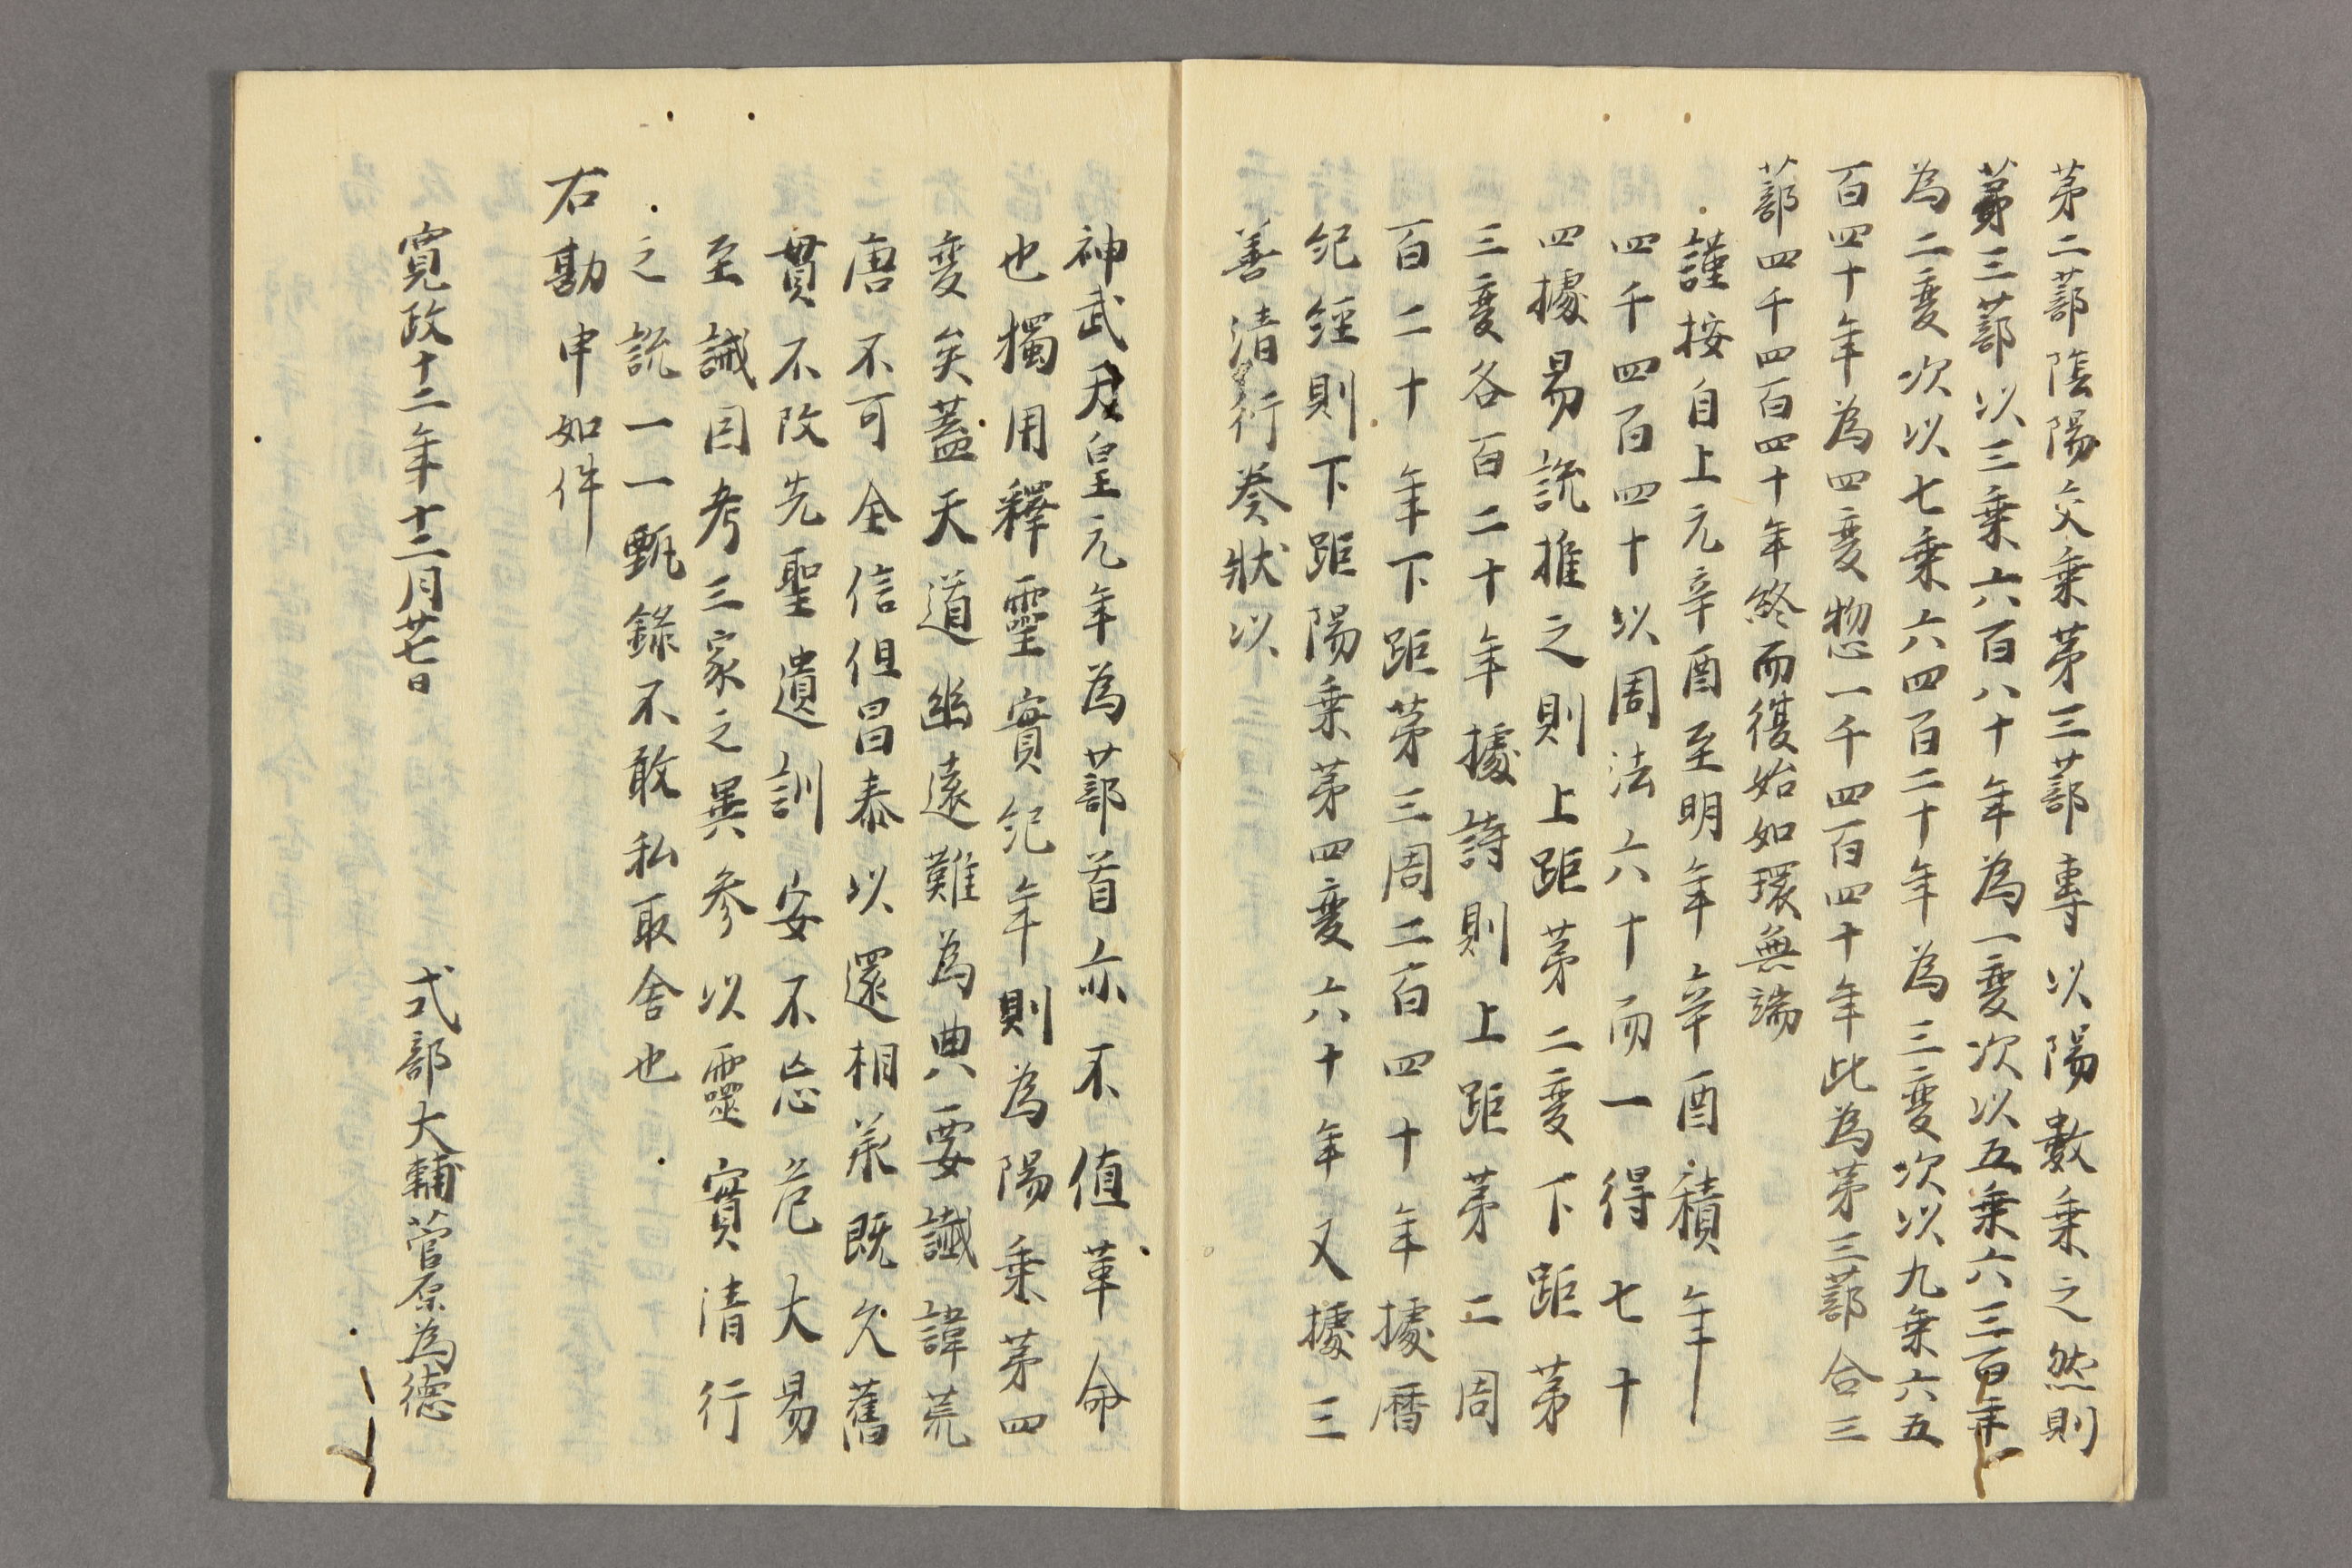 苐二蔀陰陽交乗苐三蔀専以陽數乗之然則
苐三蔀以三乗六百八十年為一變次以五乗六三百年
為二變次以七乗六四百二十年為三變次以九乗六五
百四十年為四變惣一千四百四十年此為苐三蔀合三
蔀四千四百四十年終而復始如環無端
謹按自上元辛酉至明年辛酉積年
四千四百四十以周法六十而一得七十
四據易説推之則上距苐二變下距苐
三變各百二十年據詩則上距苐二周
百二十年下距苐三周二百四十年據暦
紀經則下距陽乗苐四變六十年又據三
善清行奏状以
神武天皇元年為蔀首亦不値革命
也獨用釋靈實紀年則為陽乗苐四
變矣蓋天道幽遠難為典要讖諱荒
唐不可全信但昌泰以還相承既久舊
貫不改先聖遺訓安不忘危大易
至誡因考三家之異参以靈實清行
之説一一甄錄不敢私取舎也
右勘申如件
寛政十二年十二月廿七日
式部大輔菅原為徳